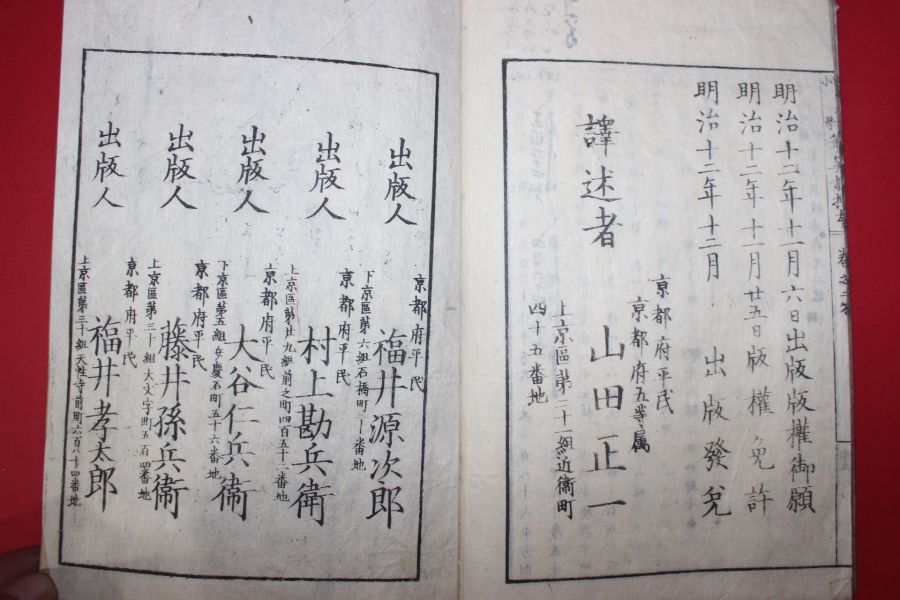 明治十二年十一月六日出版版權御願
明治十二年十一月廿五日版權免許
明治十二年十二月出版發兌
京都府平民
京都府五等属
譯述者 山田正一
上京區第三十一組近衞町
四十五番地
京都府平民
出版人 福井源次郎
下京區第六組石橋町
京都府平民
出版人 村上勘兵衛
上京區第廿九組前之町四百五十一番地
京都府平民
出版人 大谷仁兵衞
下京區第五組弁慶石町五十六番地
京都府平民
出版人 藤井孫兵衞
上京區第三十組大文字町五百四番地
京都府平民
出版人 福井孝太郎
上京區第三十一組天性寺前町六百八十四番地